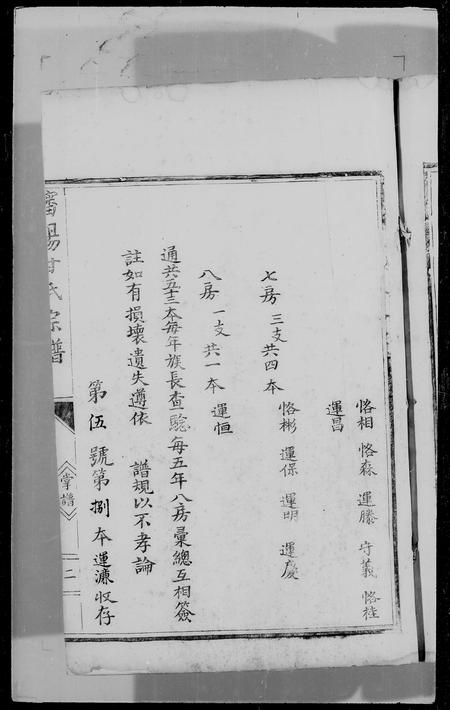 恪相 恪森 運滕 守義 恪桂
運昌
七房 三支共四本
恪彬 運保 運明 運慶
八房 一支共一本 運恒
通共五十三本每年族長查驗每五年八房彙總互相簽
註如有損壞遺失遵依 譜規以不孝論
第伍號第捌本運濂收存
瀋陽甘氏宗譜
掌譜
二